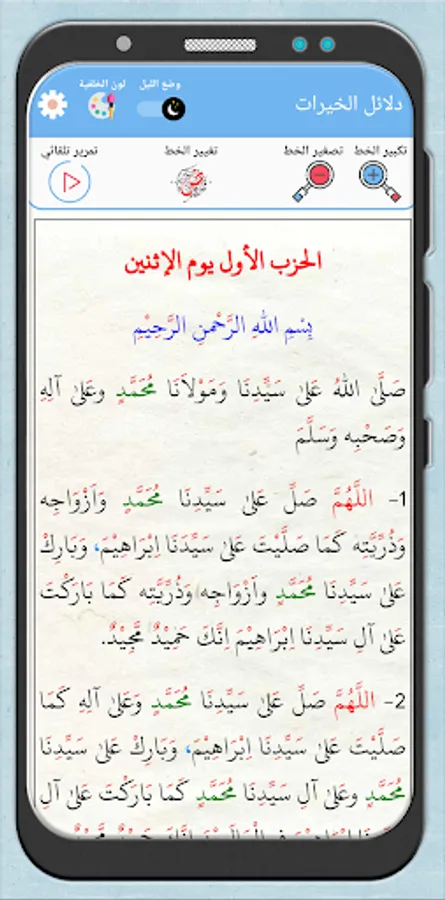 وضع الليل
لون الخلفية
دلائل الخيرات
تكبير الخط
تصغير الخط
تغيير الخط
تمرير تلقائي
الحزب الأول يوم الإثنين
بِسْمِ اللهِ الرَّحْمنِ الرَّحِيْمِ
صَلَّى اللهُ عَلىٰ سَيِّدِنَا وَمَوْلَانَا مُحَمَّدٍ وعَلىٰ آلِهِ
وَصَحْبِه وَسَلَّمَ
1- اللَّهُمَّ صَلِّ عَلىٰ سَيِّدِنَا مُحَمَّدٍ وَاَزْوَاجِه
وَذُرِّيَّتِه كَمَا صَلَّيْتَ عَلىٰ سَيِّدِنَا اِبْرَاهِيْمَ، وَبَارِكْ
عَلىٰ سَيِّدِنَا مُحَمَّدٍ واَزْوَاجِه وَذُرِّيَّتِه كَمَا بَارَكْتَ
عَلىٰ آلِ سَيِّدِنَا اِبْرَاهِيْمَ اِنَّكَ حَمِيْدٌ مَّجِيْدٌ.
2- اللَّهُمَّ صَلِّ عَلىٰ سَيِّدِنَا مُحَمَّدٍ وَعَلىٰ آلِهِ كَمَا
صَلَّيْتَ عَلىٰ سَيِّدِنَا اِبْرَاهِيْمَ، وَبَارِكْ عَلىٰ سَيِّدِنَا
مُحَمَّدٍ وعَلىٰ آلِ سَيِّدِنَا مُحَمَّدٍ كَمَا بَارَكْتَ عَلىٰ آلِ